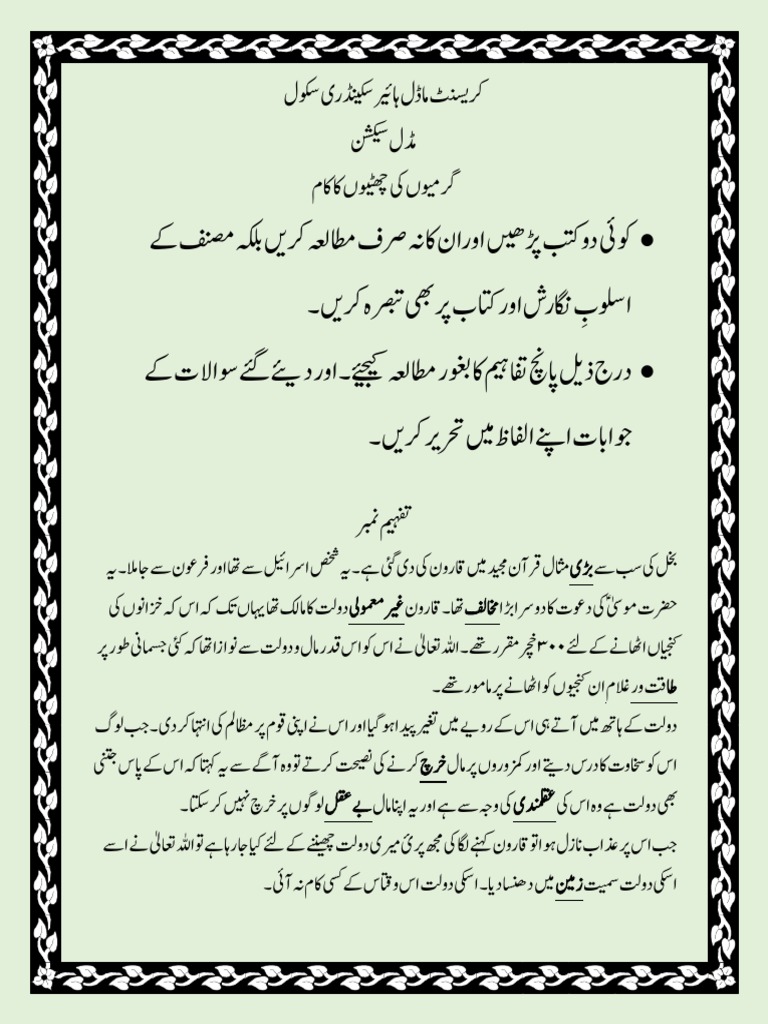 کریسنٹ ماڈل ہائیر سکینڈری سکول
مڈل سیکشن
گرمیوں کی چھٹیوں کا کام
• کوئی دو کتب پڑھیں اور ان کا نہ صرف مطالعہ کریں بلکہ مصنف کے
اسلوبِ نگارش اور کتاب پر بھی تبصرہ کریں۔
• درج ذیل پانچ تفاہیم کا بغور مطالعہ کیجیئے۔ اور دیئے گئے سوالات کے
جوابات اپنے الفاظ میں تحریر کریں۔
تفہیم نمبر
بخل کی سب سے بڑی مثال قرآن مجید میں قارون کی دی گئی ہے۔ یہ شخص اسرائیل سے تھا اور فرعون سے جا ملا۔ یہ
حضرت موسیٰؑ کی دعوت کا دوسرا بڑا مخالف تھا۔ قارون غیر معمولی دولت کا مالک تھا یہاں تک کہ اس کہ خزانوں کی
کنجیاں اٹھانے کے لئے ۳۰۰ خچر مقرر تھے۔ اللہ تعالیٰ نے اس کو اس قدر مال و دولت سے نوازا تھا کہ کئی جسمانی طور پر
طاقت ور غلام اِن کنجیوں کو اٹھانے پر مامور تھے۔
دولت کے ہاتھ میں آتے ہی اس کے رویے میں تغیر پیدا ہو گیا اور اس نے اپنی قوم پر مظالم کی انتہا کر دی۔ جب لوگ
اس کو سخاوت کا درس دیتے اور کمزوروں پر مال خرچ کرنے کی نصیحت کرتے تو وہ آگے سے یہ کہتا کہ اس کے پاس جتنی
بھی دولت ہے وہ اس کی عقلمندی کی وجہ سے ہے اور یہ اپنا مال بے عقل لوگوں پر خرچ نہیں کر سکتا۔
جب اس پر عذاب نازل ہوا تو قارون کہنے لگا کی مجھ پر یئ میری دولت چھیننے کے لئے کیا جا رہا ہے تو اللہ تعالیٰ نے اسے
اسکی دولت سمیت زمین میں دھنسا دیا۔ اسکی دولت اس وقتاس کے کسی کام نہ آئی۔